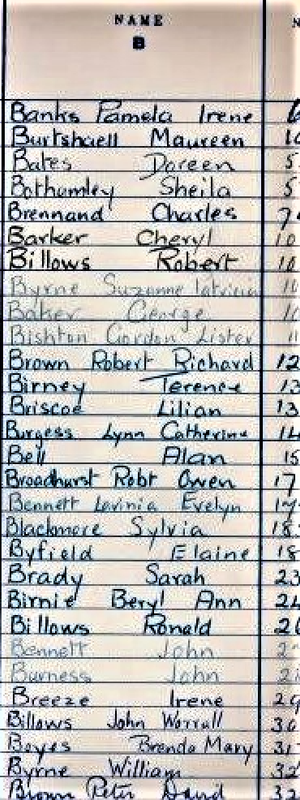 NAME
B
Banks Pamela Irene
Burtshaell Maureen 10
Bates Doreen 5
Bothamley Sheila 5
Brennand Charles 7
Barker Cheryl 10
Billows Robert 10
Byrne Suzanne Patricia 10
Baker George
Bishton Gordon Lister 11
Brown Robert Richard 12
Birney Terence 13
Briscoe Lilian 13
Burgess Lynn Catherine 14
Bell Alan 15
Broadhurst Robt Owen 17
Bennett Lavinia Evelyn 17
Blackmore Sylvia 18
Byfield Elaine 18
Brady Sarah 23
Birnie Beryl Ann
Billows Ronald
Bennett John
Burness John
Breeze Irene 29
Billows John Worrall 30
Boyes Brenda Mary 31
Byrne William 32
Brown Peter David 32